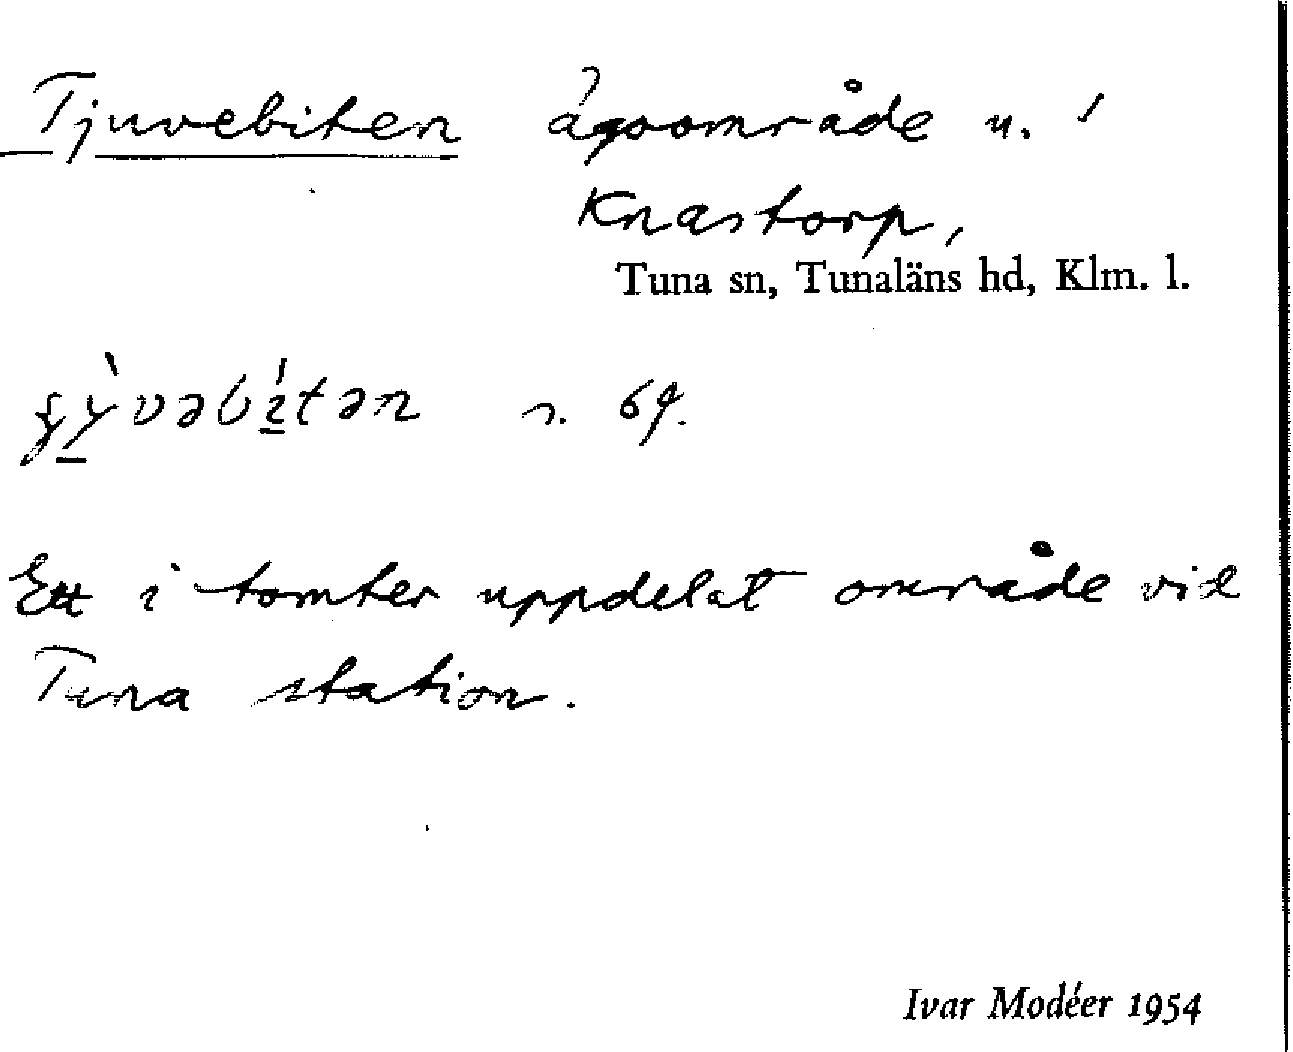 Tjuvebiten ägoområde u.
Knastorp,
Tuna sn, Tunaläns hd, Klm. l.
s. 69.
Ett i tomter uppdelat område vid
Tuna station.
Ivar Modéer 1954